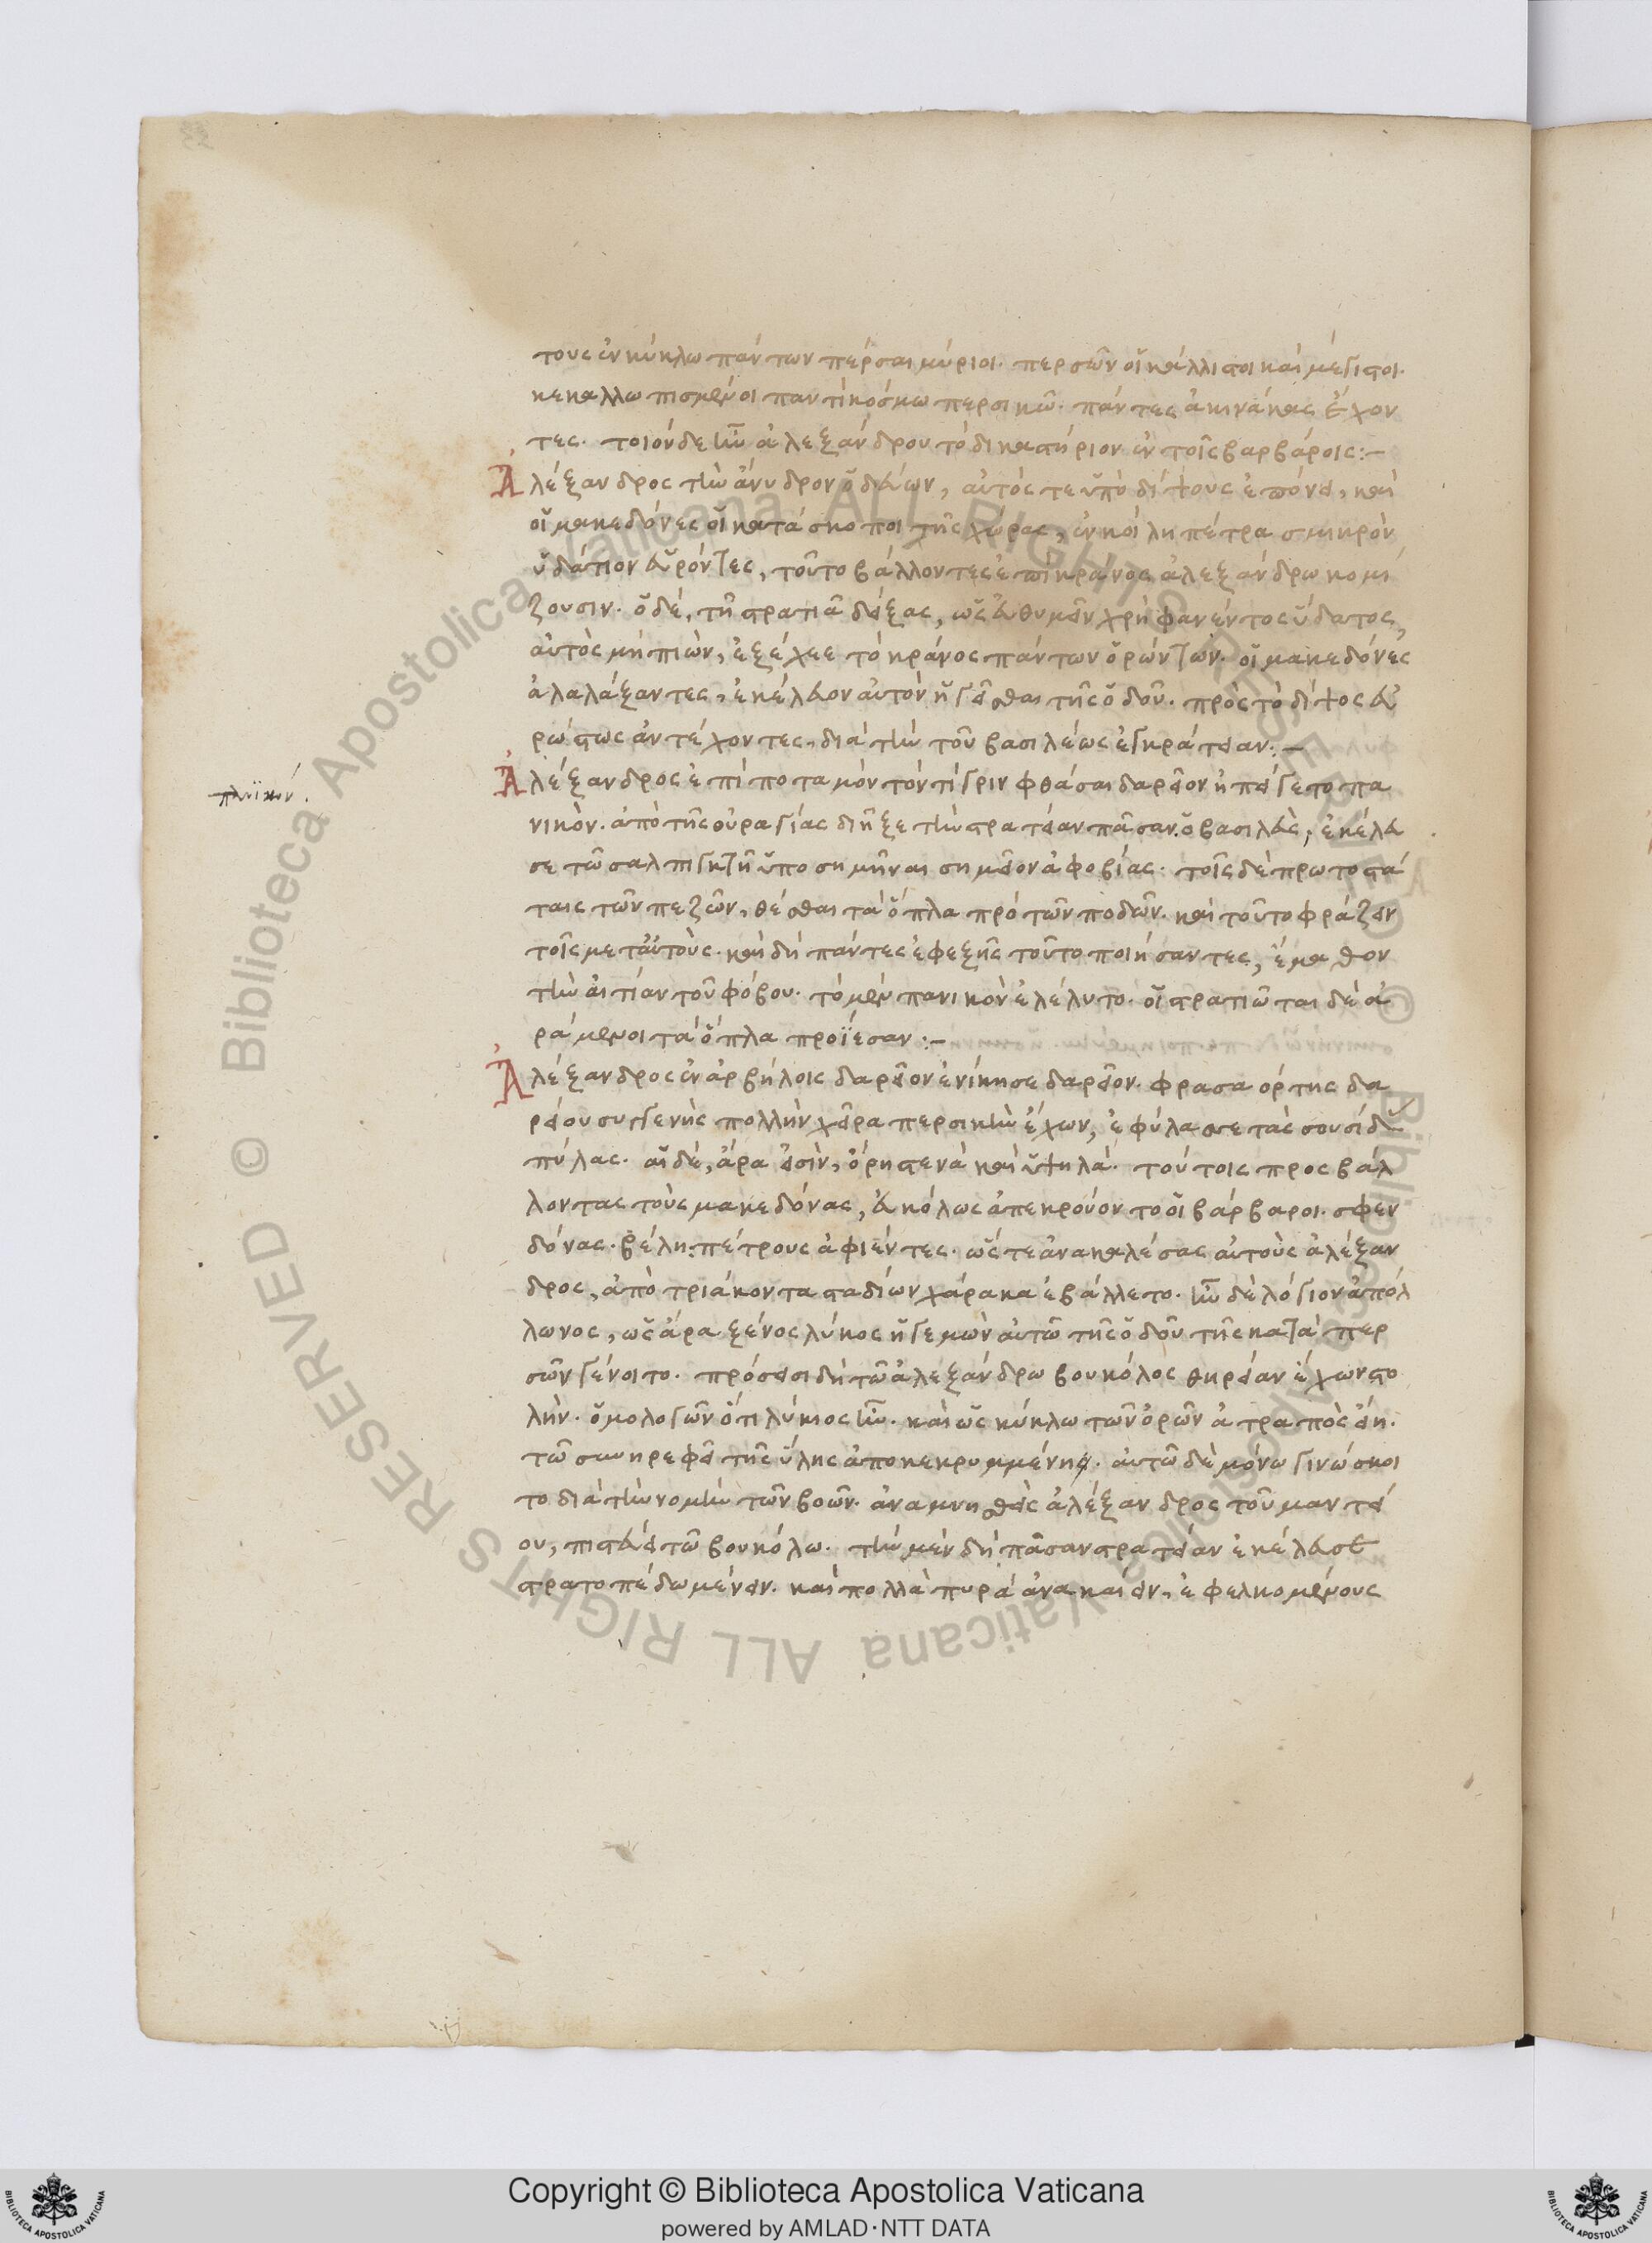 τους ἐν κύκλω πάντων πέρσαι μύριοι. περσῶν οἱ κάλλιστοι καὶ μέγιστοι.
κεκαλλωπισμένοι παντὶ κόσμω περσικῶ. πάντες ἀκινάκας ἔχον
τες. τοιόνδε ἦν ἀλεξάνδρου τὸ δικαστήριον ἐν τοῖς βαρβάροις:–
Ἀλέξανδρος τὴν ἄνυδρον ὁδεύων, αὐτός τε ὑπὸ δίψους ἐπόνει, καὶ
οἱ μακεδόνες οἱ κατάσκοποι τῆς χώρας, ἐν κοίλη πέτρα σμικρὸν
ὑδάτιον εὑρόντες, τοῦτο βάλλοντες ἐπὶ κράνος ἀλεξάνδρω κομί
ζουσιν. ὁ δέ, τῆ στρατιᾶ δείξας, ὡς εὐθυμεῖν χρὴ φανέντος ὕδατος,
αὐτὸς μὴ πιὼν, ἐξέχεε τὸ κράνος πάντων ὁρώντων. οἱ μακεδόνες
ἀλαλάξαντες, ἐκέλευον αὐτὸν ἡγεῖσθαι τῆς ὁδοῦ. πρὸς τὸ δίψος εὐ
ρώστως ἀντέχοντες, διὰ τὴν τοῦ βασιλέως ἐγκράτειαν:–
πανικόν.
Ἀλέξανδρος ἐπὶ ποταμὸν τὸν τίγριν φθάσαι δαρεῖον ἠπείγετο πα
νικὸν. ἀπὸ τῆς οὐραγίας διῆξε τὴν στρατείαν πᾶσαν. ὁ βασιλεὺς, ἐκέλευ
σε τῶ σαλπιγκτῆ ὑποσημῆναι σημεῖον ἀφοβίας. τοῖς δὲ πρωτοστά
ταις τῶν πεζῶν, θέσθαι τὰ ὅπλα πρὸ τῶν ποδῶν. καὶ τοῦτο φράζειν
τοῖς μετ' αὐτούς. καὶ δὴ πάντες ἐφεξῆς τοῦτο ποιήσαντες, ἔμαθον
τὴν αἰτίαν τοῦ φόβου. τὸ μὲν πανικὸν ἐλέλυτο. οἱ στρατιῶται δὲ ἀ
ράμενοι τὰ ὅπλα προΐεσαν:–
Ἀλέξανδρος ἐν ἀρβήλοις δαρεῖον ἐνίκησε δαρεῖον. φρασαόρτης δα
ρείου συγγενὴς πολλὴν χεῖρα περσικὴν ἔχων, ἐφύλασσε τὰς σουσίδ
πύλας. αἱ δέ, ἄρα εἰσὶν, ὄρη στενὰ καὶ ὑψηλά. τούτοις προσβάλ
λοντας τοὺς μακεδόνας, εὐκόλως ἀπεκρούοντο οἱ βάρβαροι. σφεν
δόνας. βέλη: πέτρους ἀφιέντες. ὥστε ἀνακαλέσας αὐτοὺς ἀλέξαν
δρος, ἀπὸ τριάκοντα σταδίων χάρακα ἐβάλλετο. ἦν δὲ λόγιον ἀπόλ
λωνος, ὡς ἄρα ξένος λύκος ἡγεμὼν αὐτῶ τῆς ὁδοῦ τῆς κατὰ περ
σῶν γένοιτο. πρόσεισι δὴ τῶ ἀλεξάνδρω βουκόλος θηρείαν ἔχων στο
λὴν. ὁμολογῶν ὅτι λύκιος ἦν. καὶ ὡς κύκλω τῶν ὀρῶν ἀτραπὸς εἴη.
τῶ συνηρεφεῖ τῆς ὕλης ἀποκεκρυμμένης. αὐτῶ δὲ μόνω γινώσκοι
το διὰ τὴν νομὴν τῶν βοῶν. ἀναμνησθεὶς ἀλέξανδρος τοῦ μαντεί
ου, πιστεύει τῶ βουκόλω. τὴν μὲν δὴ πᾶσαν στρατείαν ἐκέλευσε
στρατοπέδω μένειν. καὶ πολλὰ πυρὰ ἀνακαίειν, ἐφελκομένους
Copyright © Biblioteca Apostolica Vaticana
powered by AMLAD·NTT DATA
© Biblioteca Apostolica Vaticana ALL RIGHTS RESERVED